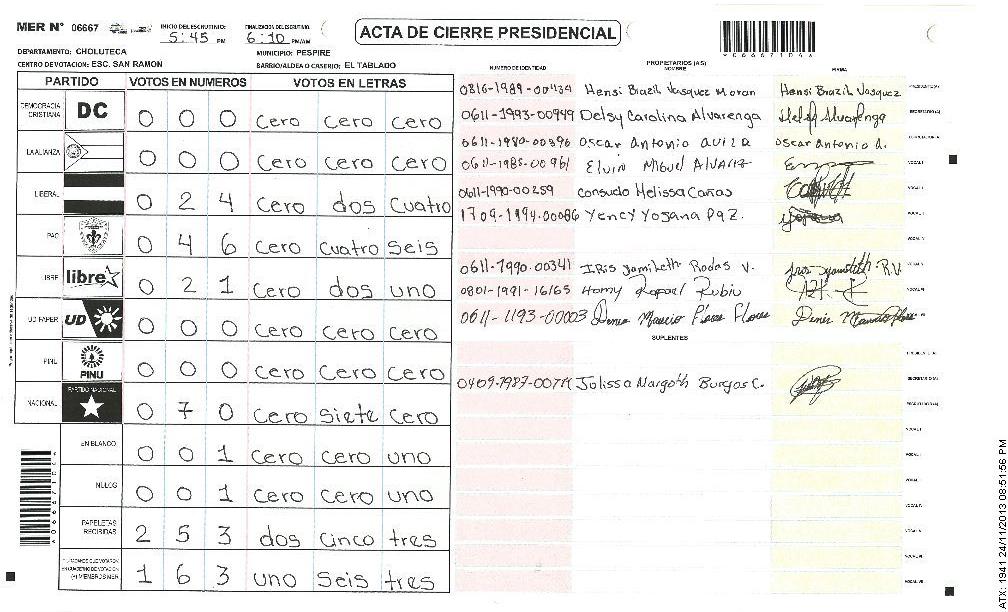 MER N° 06667
INICIO DEL ESCRUTINIO: 5:45 PM
FINALIZACION DEL ESCRUTINIO: 6:10 PM/AM
ACTA DE CIERRE PRESIDENCIAL
DEPARTAMENTO: CHOLUTECA
MUNICIPIO: PESPIRE
CENTRO DE VOTACION: ESC. SAN RAMON
BARRIO/ALDEA O CASERIO: EL TABLADO
PARTIDO VOTOS EN NUMEROS VOTOS EN LETRAS
DEMOCRACIA CRISTIANA DC 0 0 0 cero cero cero
LA ALIANZA 0 0 0 cero cero cero
LIBERAL 0 2 4 cero dos cuatro
PAC 0 4 6 cero cuatro seis
LIBRE libre 0 2 1 cero dos uno
UD FAPER UD 0 0 0 cero cero cero
PINU PINU 0 0 0 cero cero cero
NACIONAL PARTIDO NACIONAL 0 7 0 cero siete cero
EN BLANCO 0 0 1 cero cero uno
NULOS 0 0 1 cero cero uno
PAPELETAS RECIBIDAS 2 5 3 dos cinco tres
1 6 3 uno seis tres
NUMERO DE IDENTIDAD PROPIETARIOS (AS) NOMBRE FIRMA
0816-1989-00434 Hensi Brazil Vasquez Moran Hensi Brazil Vasquez PRESIDENTE(A)
0611-1993-00949 Delsy Carolina Alvarenga SECRETARIO(A)
0611-1980-00396 Oscar Antonio avila Oscar Antonio A.
0611-1985-00961 Elvin Miguel Alvarez VOCAL I
0611-1990-00259 consudo Melissa Cañas
1709-1994-00086 Yency Yosana Paz.
0611-1990-00341 Iris Jamileth Rodas V.
0801-1991-16165 Homy Rafael Rubio
0611-1193-00003
SUPLENTES
Jolissa Margoth Burgos C. SECRETARIO(A)
A066671046
ATX: 1941 24/11/2013 08:51:56 PM